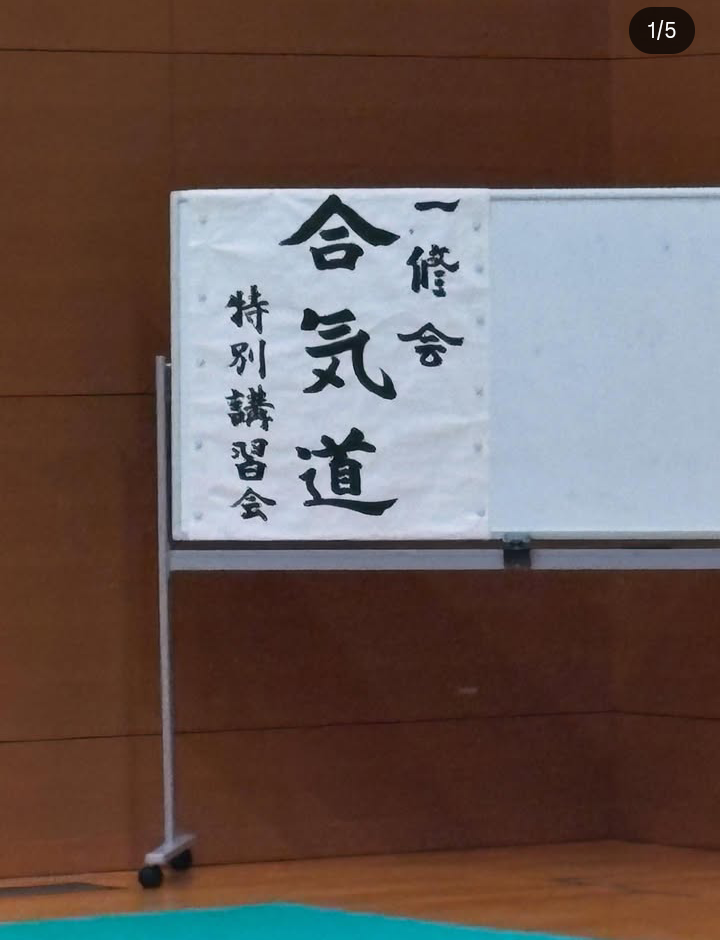 1/5
一修会
合気道
特別講習会